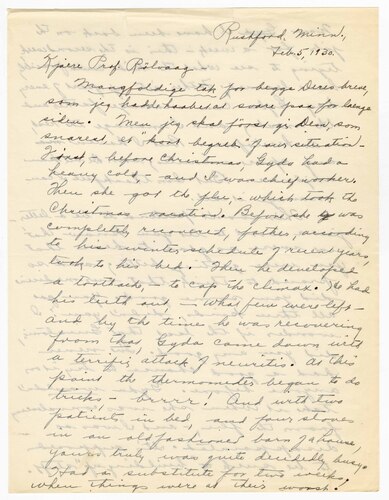 Rushford, Minn.,
Feb. 5, 1930.
Kjære Prof. Rölvaag
Mangfoldige tak for begge Deres breve,
som jeg hadde haabet at svare paa for længe
siden. Men jeg skal först gi Dem, som
snarest, et "kort begreb" af our situation.
First, – before Christmas, Gyda had a
heavy cold, – and I was chief worker.
Then she got the flu – which took the
Christmas vacation. Before she was
completely recovered, father, according
to his winter schedule of recent years,
took to his bed. Then he developed
a toothache, – to cap the climax. He had
his teeth out, – what few were left –
and by the time he was recovering
from that, Gyda came down with
a terrific attack of neuritis. At this
point the thermometer began to do
tricks – brrrr! And with two
patients in bed, and four stoves
in an oldfashioned barn of a house,
yours truly was quite decidedly busy.
Had a substitute for two weeks,
when things were at their worst.